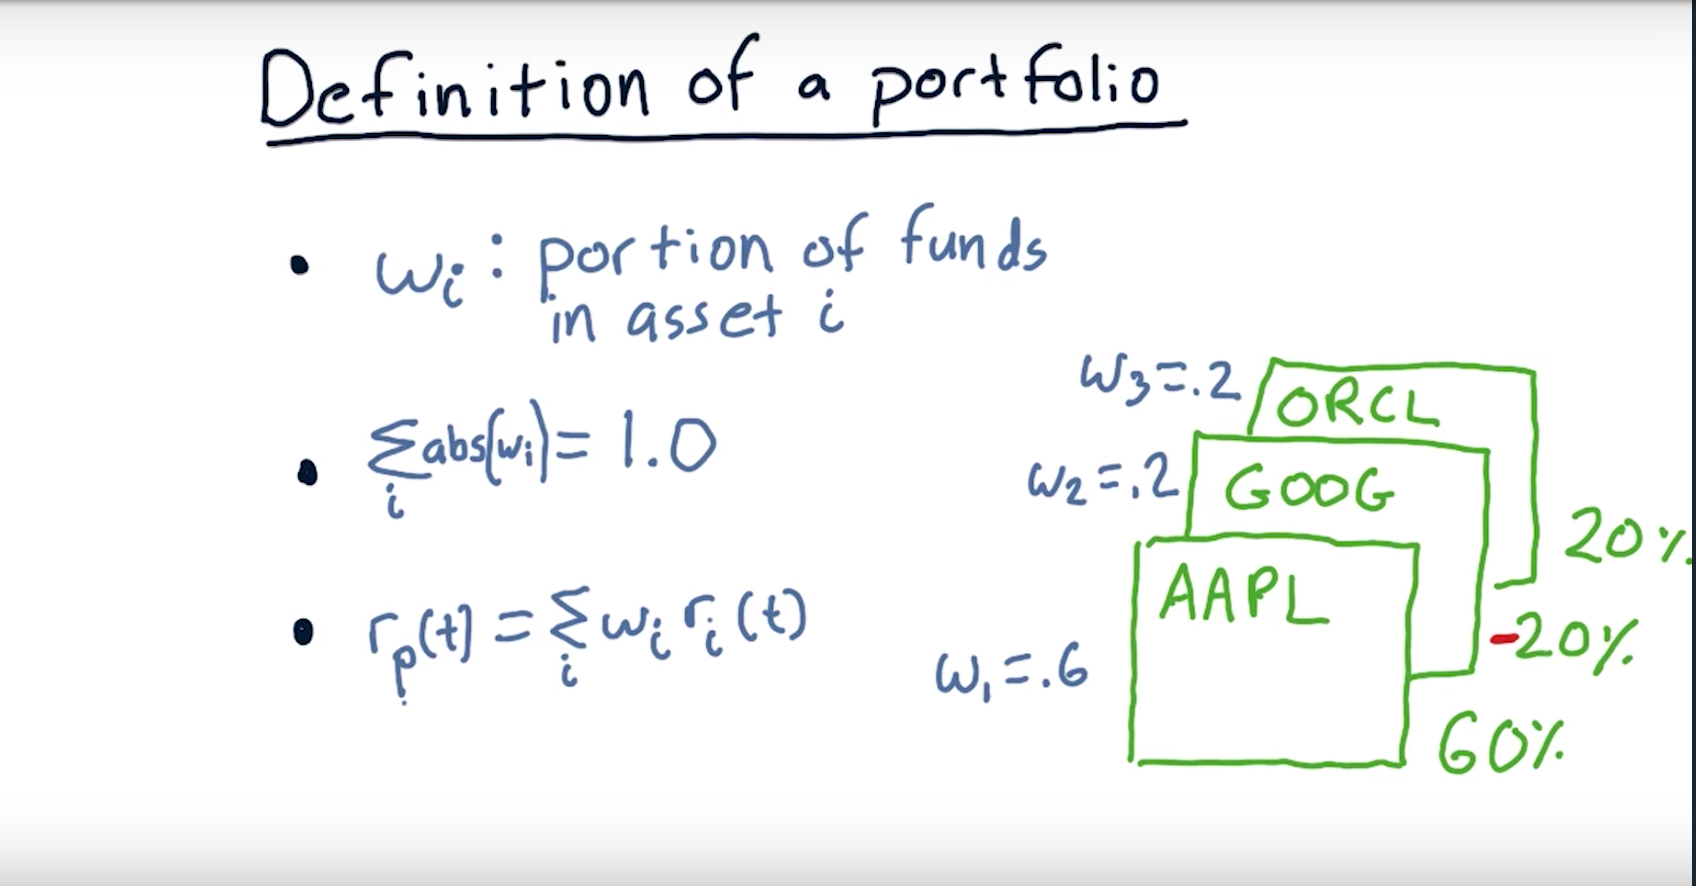 Definition of a portfolio
• wᵢ : portion of funds
in asset i
• ∑ᵢ abs(wᵢ) = 1.0
• rₚ(t) = ∑ᵢ wᵢ rᵢ(t)
w₃=.2 ORCL
w₂=.2 GOOG
20%
AAPL
-20%
w₁=.6
60%